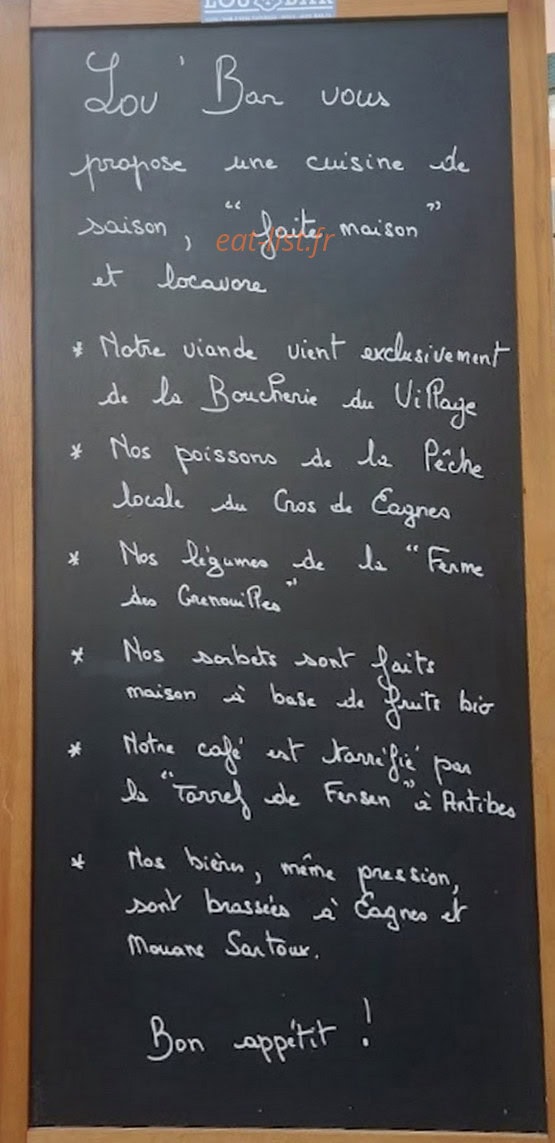 LOU BAR
Lou' Bar vous
propose une cuisine de
saison, "faite maison"
eat-list.fr
et locavore
* Notre viande vient exclusivement
de la Boucherie du Village
* Nos poissons de la Pêche
locale du Cros de Cagnes
* Nos légumes de la "Ferme
des Grenouilles"
* Nos sorbets sont faits
maison à base de fruits bio
* Notre café est torréfié par
la "Torref de Fersen" à Antibes
* Nos bières, même pression,
sont brassées à Cagnes et
Mouans Sartoux.
Bon appétit !